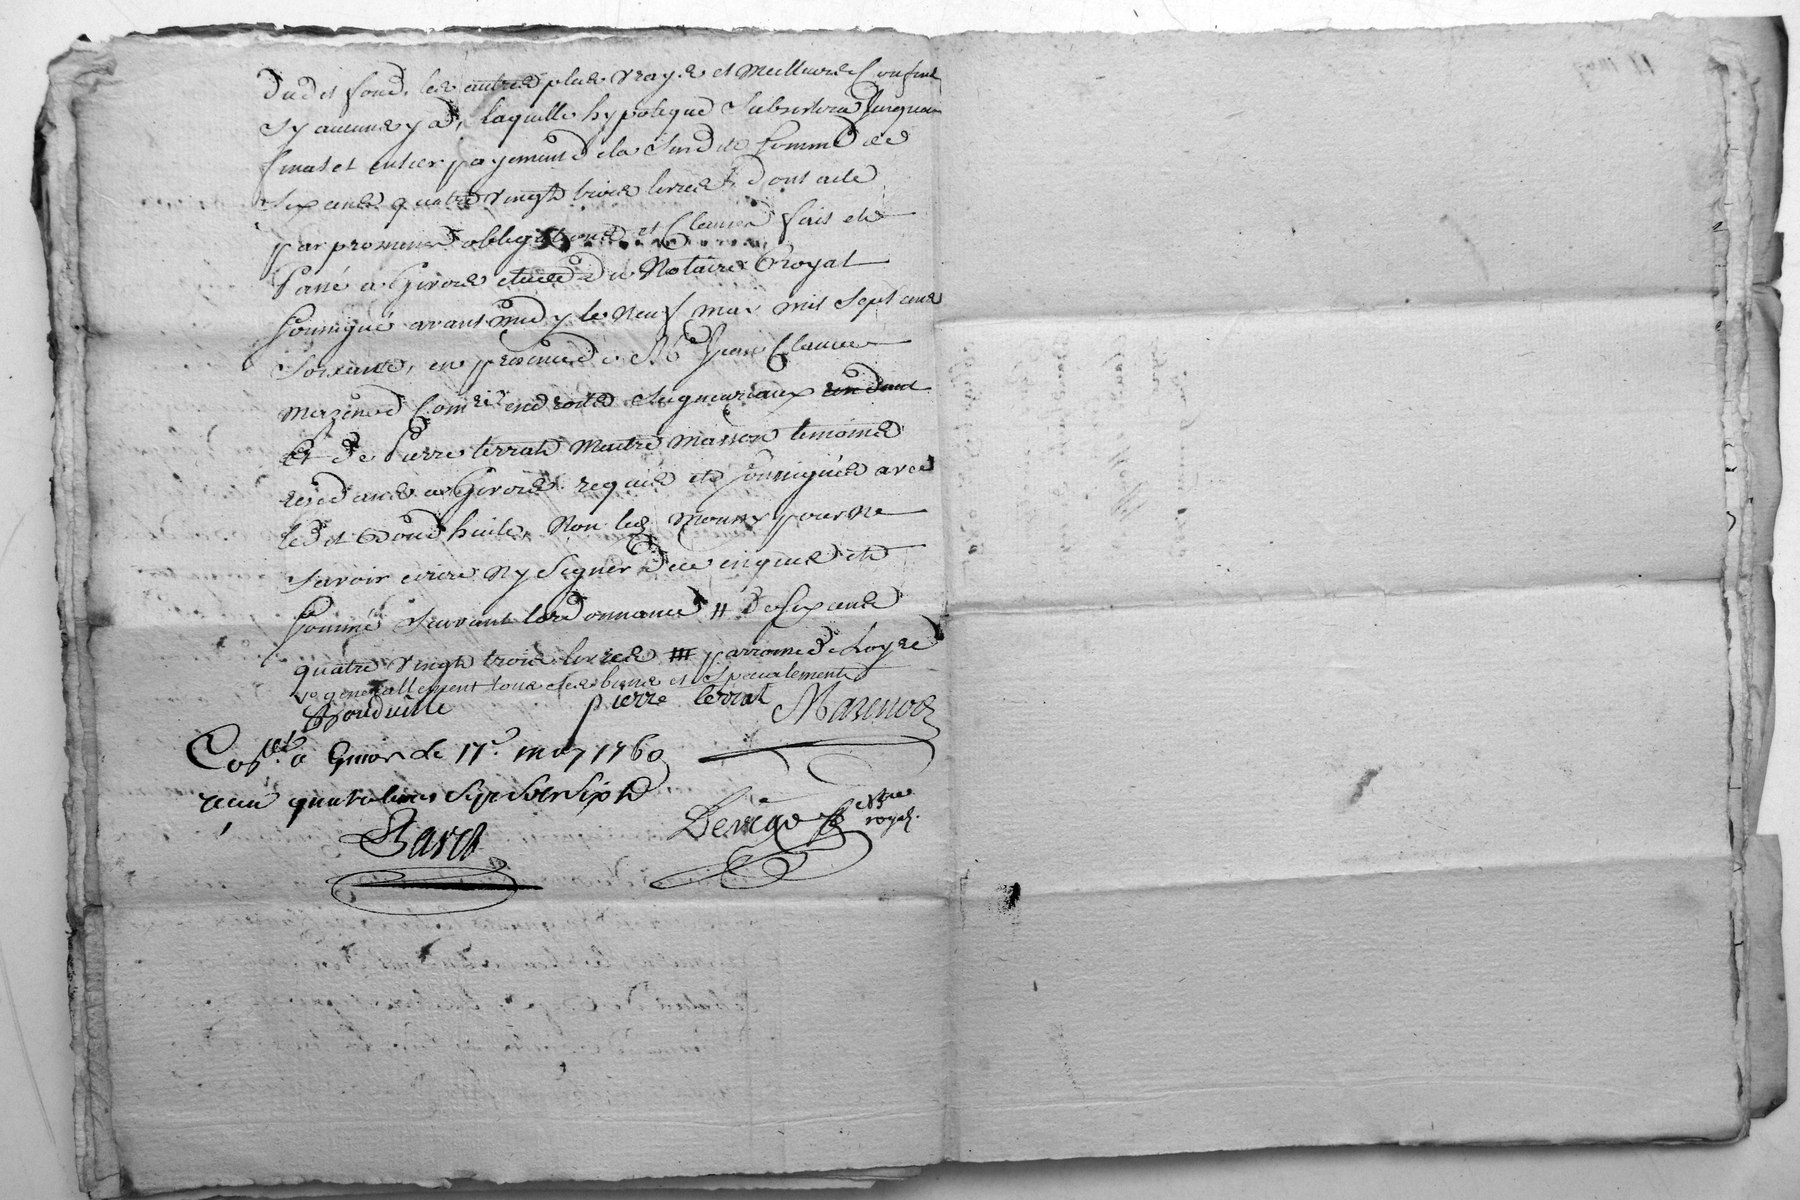 dudit fond, les autres plus vrays et meilleurs Confins
sy aucuns y a, laquelle hypoteque subsistera Jusques
final et entier payement de la susdite somme de
six cens quatre vingts trois livres, dont acte
par promesses obligations et Clauses fait et
passé a Givors etude du Notaire Royal
soussigné avant midy le neuf may mil sept cens
soixante, en presence de Mr Jean Claude
Mazenod Comre en droits seigneuriaux
et de Pierre terrat Maitre Masson temoins
residans a Givors requis et soussignés avec
ledit Bonduille, non led Mounx pour ne
savoir ecrire ny signer de ce enquis et
sommé suivant lordonnance // de six cens
quatre vingts trois livres //// parroisse de Loyre
generallement tous ses biens et specialement
Bonduille pierre terrat Mazenod
Conlé a Givors le 17e may 1760
receu quatre livres six sols six d
Devigo Nre royal.
Baret